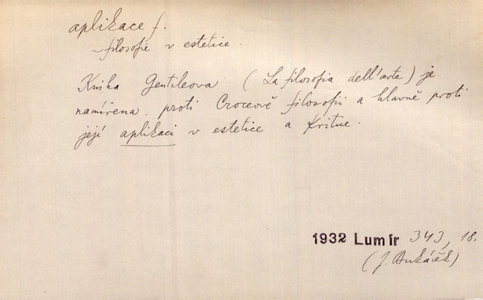 aplikace f.
~ filosofie v estetice.
Kniha Gentileova (La filosofia dell'arte) je
namířena proti Croceově filosofii a hlavně proti
její aplikaci v estetice a kritice.
1932 Lumír 343, 18.
(J.